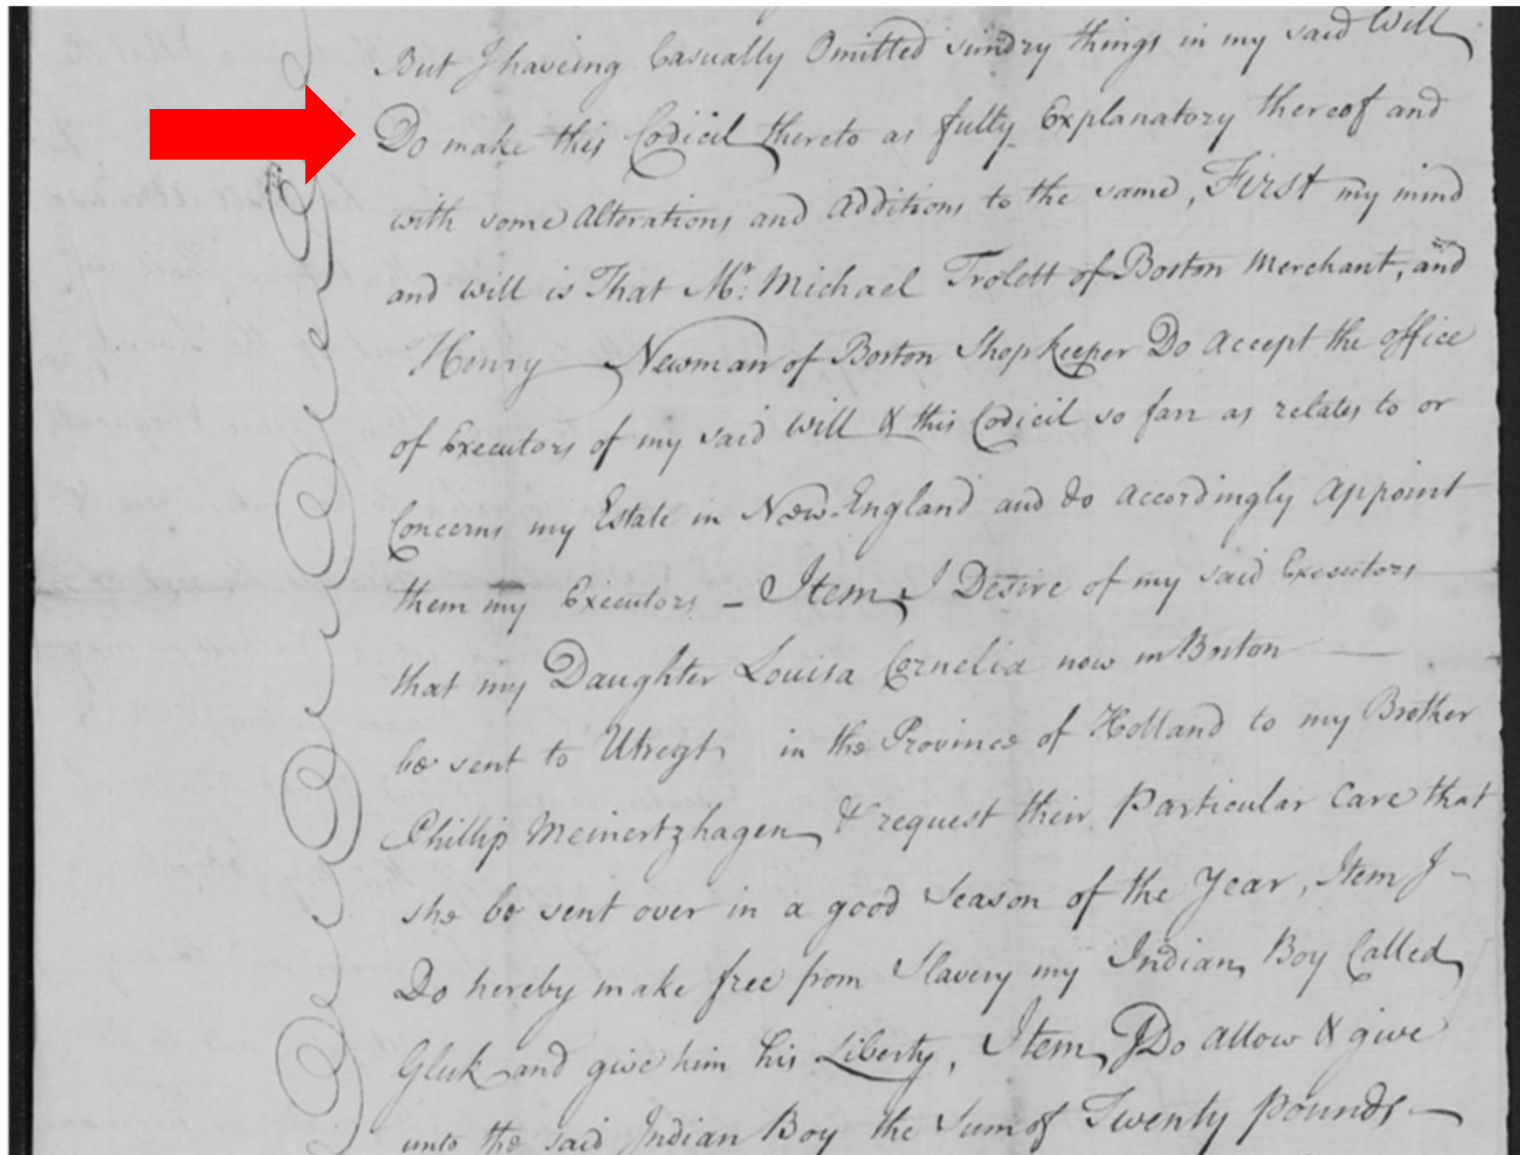 But I haveing Casually Omitted sundry things in my said Will
Do make this Codicil thereto as fully Explanatory thereof and
with some Alterations and Additions to the same, First my mind
and will is That Mr: Michael Trolett of Boston Merchant, and
Henry Newman of Boston Shopkeeper Do Accept the office
of Executors of my said Will & this Codicil so farr as relates to or
Concerns my Estate in New-England and do Accordingly Appoint
them my Executors – Item, I Desire of my said Executors
that my Daughter Louisa Cornelia now in Boston
be sent to Utregt in the Province of Holland to my Brother
Phillip Meinertzhagen, & request their Particular Care that
she be sent over in a good Season of the Year, Item I –
Do hereby make free from Slavery my Indian Boy Called
Gluk and give him his Liberty, Item, I Do Allow & give
unto the said Indian Boy the Sum of Twenty pounds –